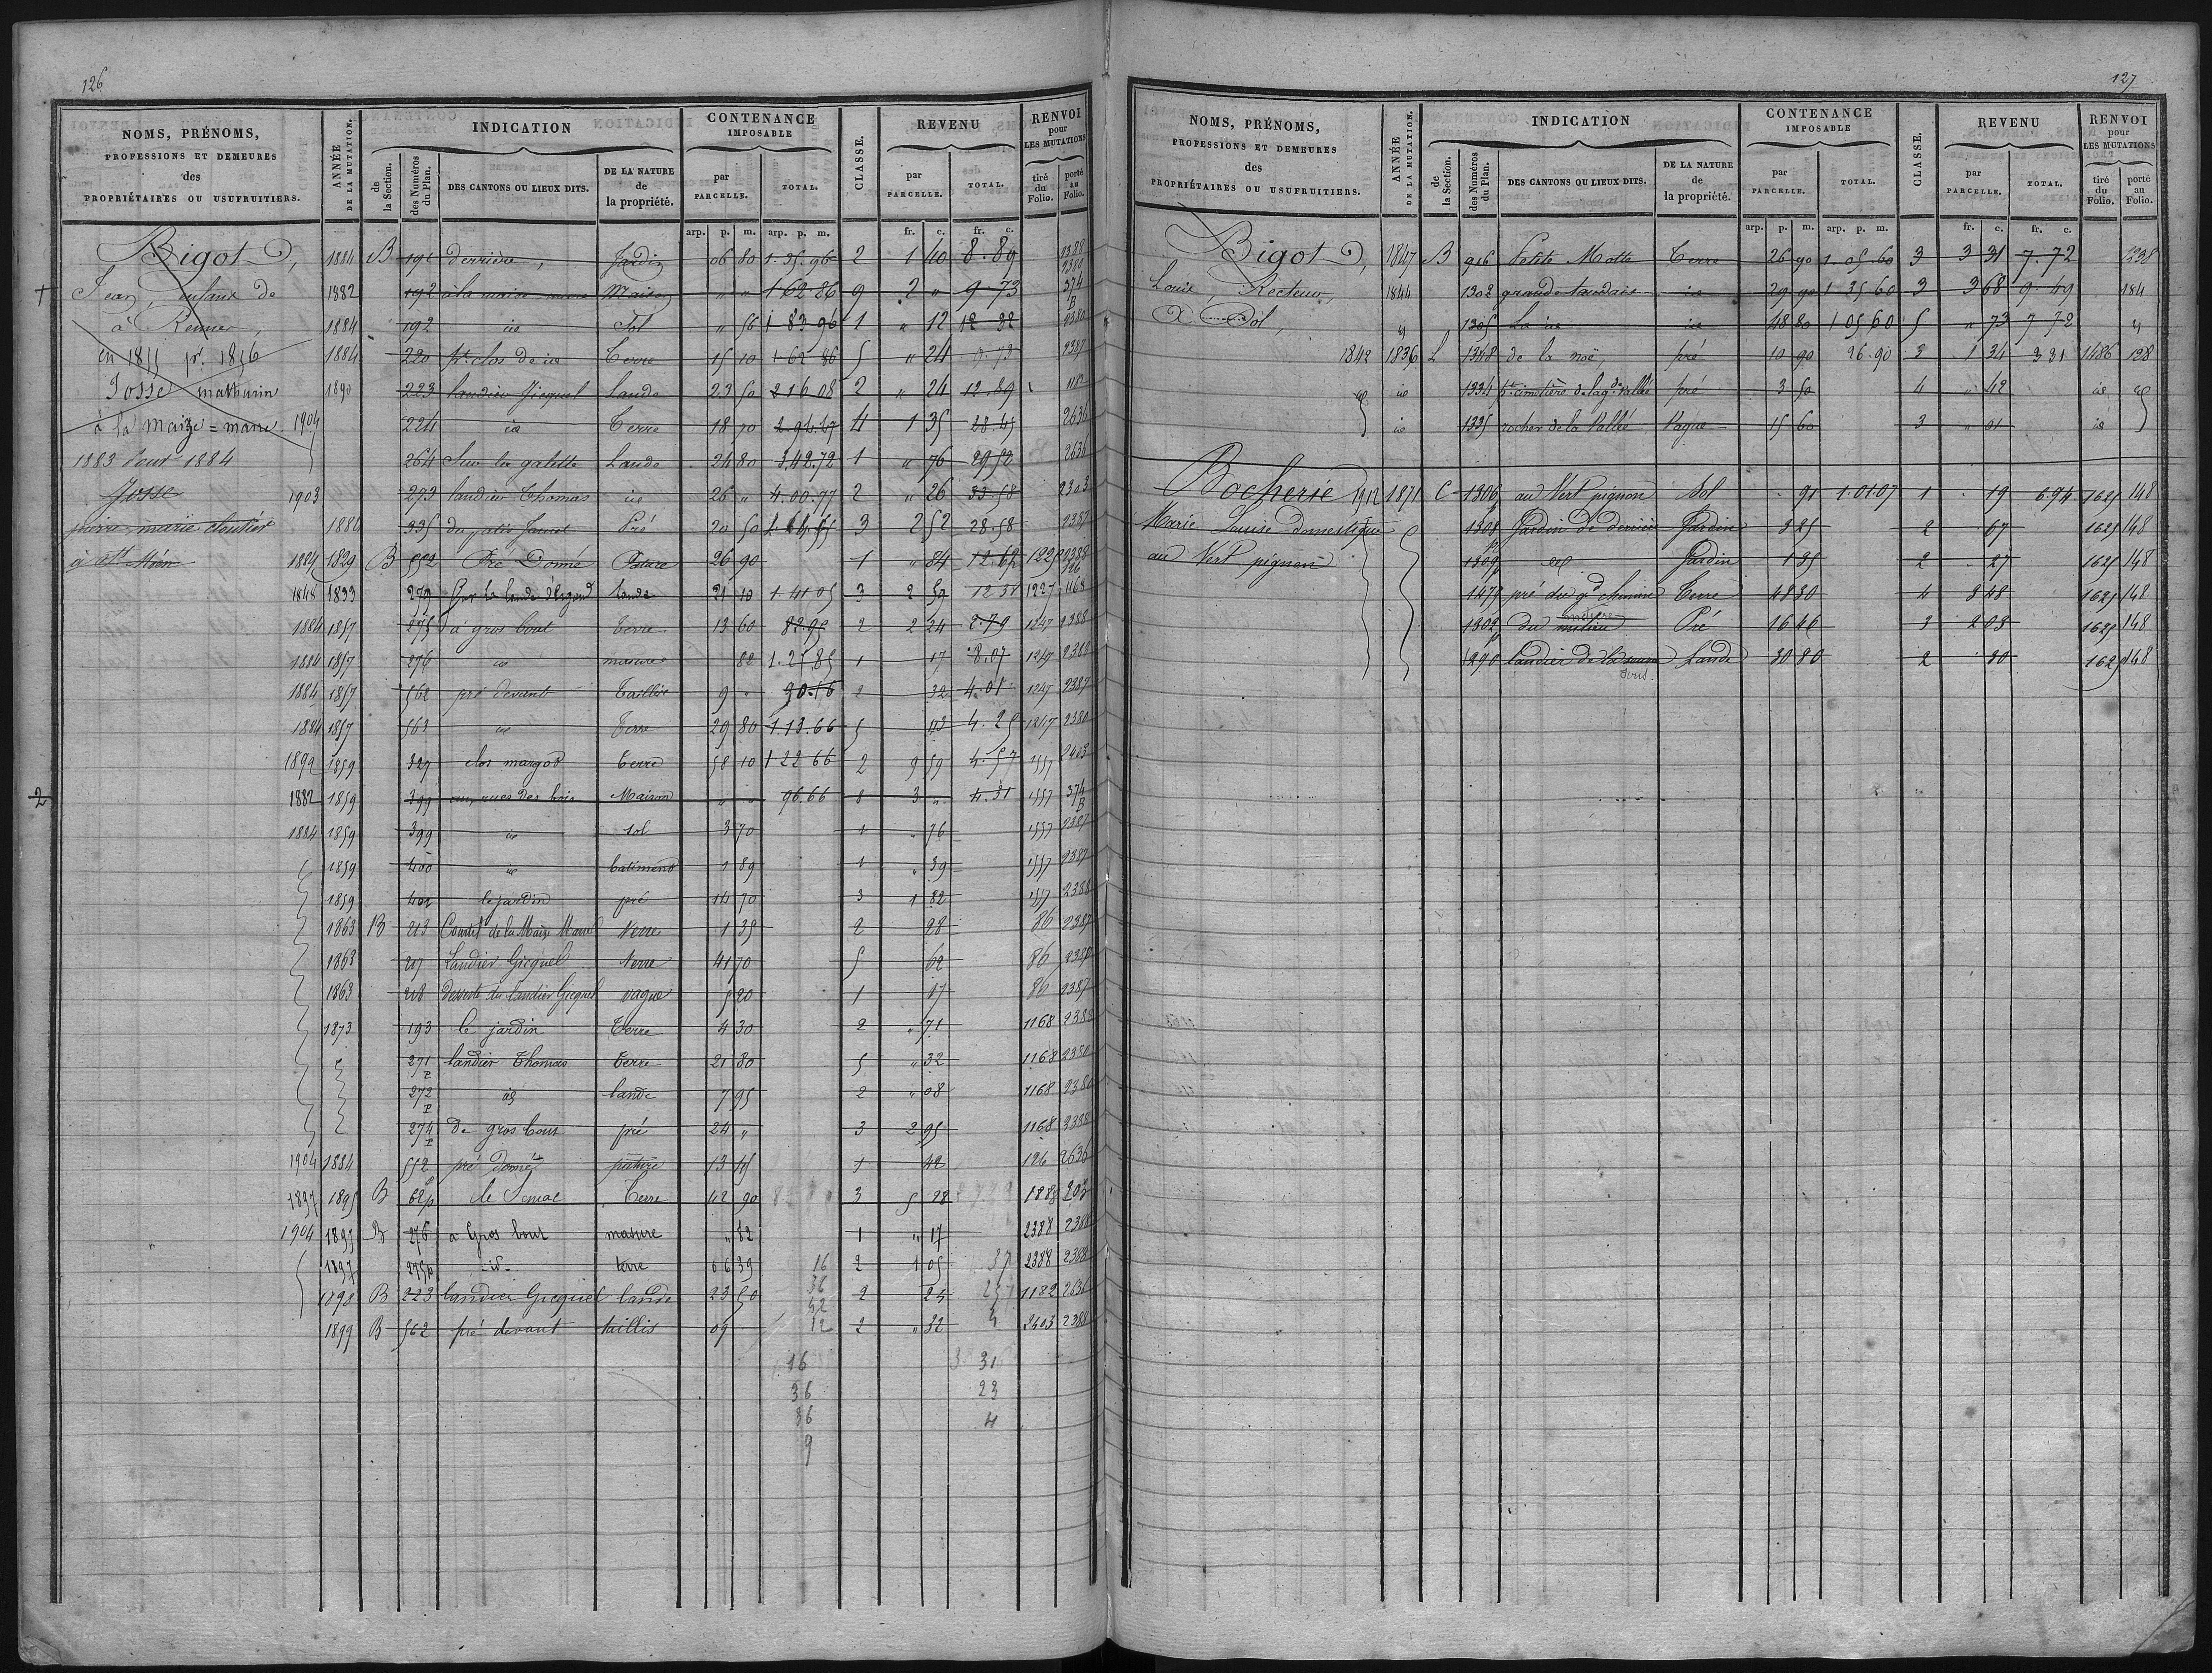 126
NOMS, PRÉNOMS, PROFESSIONS ET DEMEURES des PROPRIÉTAIRES OU USUFRUITIERS.
ANNÉE DE LA MUTATION.
INDICATION
de la Section.
des Numéros du Plan.
DES CANTONS OU LIEUX DITS.
DE LA NATURE de la propriété.
CONTENANCE IMPOSABLE
par PARCELLE.
TOTAL.
CLASSE.
REVENU
par PARCELLE.
TOTAL.
RENVOI pour LES MUTATIONS
tiré du Folio.
porté au Folio.
arp. p. m. arp. p. m. fr. c. fr. c.
Bigot, 1884 B 191 derrière, Jardin 06 80 1.35.96 2 1 40 8.89 2388
Jean, enfans de 1882 192 à la maize marre Maison " " 1 62 86 9 2 " 9 73 374 B
à Rennes, 1884 192 id Sol " 56 1 83 96 1 " 12 12 32 2380
en 1855 pr. 1856 1884 220 pt clos de id Terre 15 10 1 62 86 5 " 24 9.73 2387
Josse mathurin 1890 223 landier Jicquel Lande 23 50 2 16 08 2 " 24 12.89 1182
à la maize = marre 1904 224 id Terre 18 70 4 1 35 28.45 2636
1883 pour 1884 264 Sur la galette Lande 24 80 3.42.72 1 " 76 29 50 2636
Josse 1903 273 landier Thomas id 26 " 4.00.77 2 " 26 33.58 2303
pierre marie cloutier 1880 335 Pré 20 50 3 2 52 28.58 2387
à St Méen 1884 1829 B 552 Pré Domé Pature 26 90 1 " 84 12.62 2388
1848 1833 lande 21 10 1 41 05 3 2 59 12 31 1227 1168
1884 1857 275 à gros bout terre 13 60 82 95 2 2 24 1247 2388
1884 1857 276 id masure 82 1.25.85 1 17 8.07 1247 2388
1884 1857 562 pré devant Taillis 9 " 90.16 2 32 4.01 1247 2387
1884 1857 563 id Terre 29 80 1.13.66 5 43 4.25 1247 2380
1899 1859 327 clos margot terre 58 10 1 22 66 2 9 59 4.57 1557 2403
2 1882 1859 399 aux rues des bois Maison " " 96.66 8 3 " 4.31 1557 374 B
1884 1859 399 id sol 3 70 1 " 76 1557 2387
1859 400 id batiment 1 89 1 " 39 1557 2387
1859 401 le jardin pré 14 70 3 1 82 1557 2388
1863 B 213 Courtil de la Maize Marre terre 1 35 2 28 86 2387
1863 217 Landier Gicquel terre 41 70 5 62 86
1863 218 desserte du landier Gicquel vague 5 20 1 17 86 2387
1873 193 le jardin Terre 4 30 2 " 71 1168 2388
271 p landier Thomas terre 21 80 5 " 32 1168 2380
272 p id lande 7 95 2 " 08 1168 2380
274 p de gros bout pré 24 " 3 2 95 1168 2388
1904 1884 552 p pré domé pature 13 45 1 42 126 2636
1897 1895 B 62 p Terre 42 90 3 5 28 1888 203
1904 1897 B 276 a Gros bout masure " 82 1 " 17 2388 2388
1897 275 p -id- terre 06 39 16 2 1 05 37 2388 2388
1898 B 223 landier Gicquel lande 23 50 36 2 24 1182 2636
1899 B 562 pré devant taillis 09 12 2 " 32 4 2403 2388
16 31
36 23
36 4
9
127
NOMS, PRÉNOMS, PROFESSIONS ET DEMEURES des PROPRIÉTAIRES OU USUFRUITIERS.
ANNÉE DE LA MUTATION.
INDICATION
de la Section.
des Numéros du Plan.
DES CANTONS OU LIEUX DITS.
DE LA NATURE de la propriété.
CONTENANCE IMPOSABLE
par PARCELLE.
TOTAL.
CLASSE.
REVENU
par PARCELLE.
TOTAL.
RENVOI pour LES MUTATIONS
tiré du Folio.
porté au Folio.
arp. p. m. arp. p. m. fr. c. fr. c.
Bigot, 1847 B 916 Petite Motte Terre 26 90 1.05.60 3 3 31 7.72
Louis, Recteur, 1844 1302 grande id 29 90 1 35 60 3 3 68 9 49 184
Dol, 1305 La id id 48 80 1 05 60 5 " 73 7 72
1842 1836 L 1348 de la noë, pré 10 90 26.90 3 1 34 3 31 1486 128
id 1334 pt cimetière de la gde Vallée pré 3 50 4 " 42 id
id 1335 rocher de la Vallée Vague 15 60 3 " 01 id
Bocherie 1912 1871 C 1306 p au Vert pignon Sol 91 1.01.07 1 19 6.94 1625 148
Marie Louise domestique 1308 p Jardin de derrière Jardin 3 25 2 67 1625 148
au Vert pignon 1309 p id Jardin 1 35 2 27 1625 148
1479 pré du gd chemin Terre 48 80 4 3 48 1625 148
1302 p du milieu Pré 16 46 3 2 03 1625 148
1290 landier de la Lande 30 80 2 30 1625 148